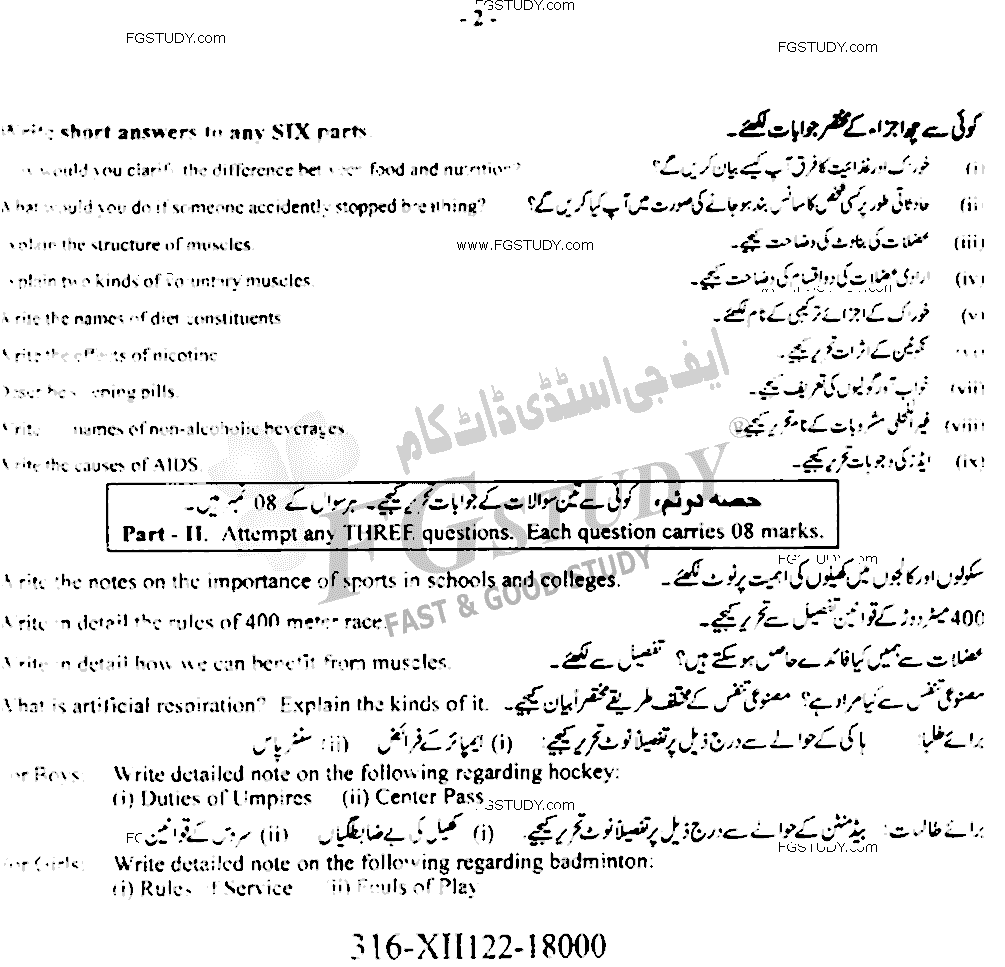 - 2 -
FGSTUDY.com
FGSTUDY.com
FGSTUDY.com
FGSTUDY.com
Write short answers to any SIX parts کوئی سے چھ اجزاء کے مختصر جوابات لکھئے۔
would you clarify the difference between food and nutrition? خوراک اور غذائیت کا فرق آپ کیسے بیان کریں گے؟ (i)
What would you do if someone accidently stopped breathing? حادثاتی طور پر کسی شخص کا سانس بند ہو جانے کی صورت میں آپ کیا کریں گے؟ (ii)
Explain the structure of muscles. عضلات کی بناوٹ کی وضاحت کیجیے۔ (iii)
www.FGSTUDY.com
Explain two kinds of Voluntary muscles. ارادی عضلات کی دو اقسام کی وضاحت کیجیے۔ (iv)
Write the names of diet constituents خوراک کے اجزائے ترکیبی کے نام لکھئے۔ (v)
Write the effects of nicotine نکوٹین کے اثرات تحریر کیجیے۔
pills. خواب آور گولیوں کی تعریف کیجیے۔ (vii)
Write names of non-alcoholic beverages. غیر الکحلی مشروبات کے نام تحریر کیجیے۔ (viii)
Write the causes of AIDS. ایڈز کی وجوہات تحریر کیجیے۔ (ix)
ایف جی اسٹڈی ڈاٹ کام
FG STUDY
FAST & GOOD STUDY
حصہ دوئم، کوئی سے تین سوالات کے جوابات تحریر کیجیے۔ ہر سوال کے 08 نمبر ہیں۔
Part - II. Attempt any THREE questions. Each question carries 08 marks.
FGSTUDY.com
Write the notes on the importance of sports in schools and colleges. سکولوں اور کالجوں میں کھیلوں کی اہمیت پر نوٹ لکھئے۔
Write in detail the rules of 400 meter race. 400 میٹر دوڑ کے قوانین تفصیل سے تحریر کیجیے۔
Write in detail how we can benefit from muscles. عضلات سے ہمیں کیا فائدے حاصل ہو سکتے ہیں؟ تفصیل سے لکھئے۔
What is artificial respiration? Explain the kinds of it. مصنوعی تنفس سے کیا مراد ہے؟ مصنوعی تنفس کے مختلف طریقے مختصراً بیان کیجیے۔
برائے طلبا: ہاکی کے حوالے سے درج ذیل پر تفصیلاً نوٹ تحریر کیجیے: (i) ایمپائر کے فرائض (ii) سنٹر پاس
For Boys: Write detailed note on the following regarding hockey:
(i) Duties of Umpires (ii) Center Pass
FGSTUDY.com
برائے طالبات: بیڈمنٹن کے حوالے سے درج ذیل پر تفصیلاً نوٹ تحریر کیجیے۔ (i) کھیل کی بے ضابطگیاں (ii) سروس کے قوانین
FGSTUDY.com
For Girls: Write detailed note on the following regarding badminton:
(i) Rules of Service (ii) Fouls of Play
316-XII122-18000